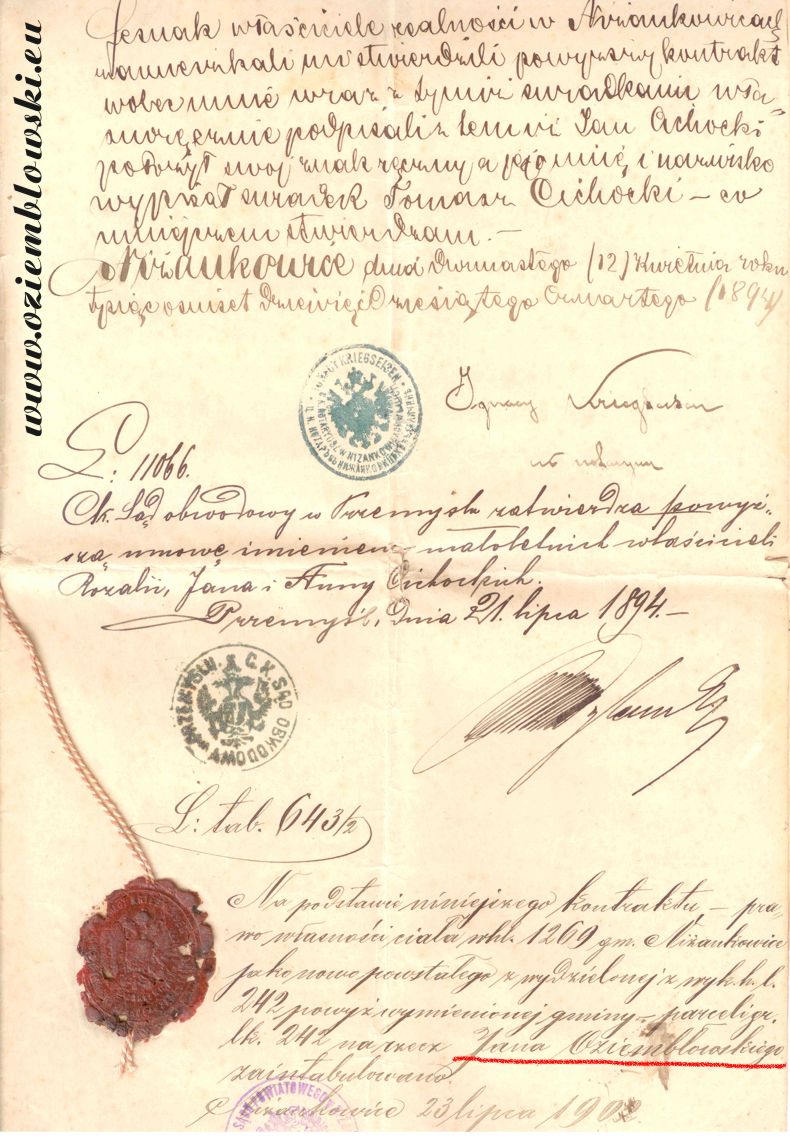 Lesnak właściciele realności w Niżankowicach
zamieszkali mi stwierdzili powyższy kontrakt
wobec mnie wraz z tymiż świadkami wła-
snoręcznie podpisali z temi Jan Cichocki
położył swój znak ręczny a jego imię i nazwisko
wypisał świadek Tomasz Cichocki – co
niniejszem stwierdzam. –
Niżankowice dnia dwunastego (12) kwietnia roku
tysiąc ośmset dziewięćdziesiątego czwartego (1894)
Ignacy Kriegseisen
L: 11066.
Ck. Sąd obwodowy w Przemyślu zatwierdza powyż-
szą umowę imieniem małoletnich właścicieli
Rozalii, Jana i Anny Cichockich.
Przemyśl, dnia 21. lipca 1894. –
C. K. SĄD OBWODOWY w PRZEMYŚLU
L: tab. 643/2
Na podstawie niniejszego kontraktu – pra-
wo własności ciała whl. 1269 gm. Niżankowice
jako nowo powstałego z wydzielonej z wyk. h. l.
242 powyż wymienionej gminy – parceli gr.
lk. 242 na rzecz Jana Oziembłowskiego
zaintabulowano.
Niżankowice 23 lipca
www.oziemblowski.eu